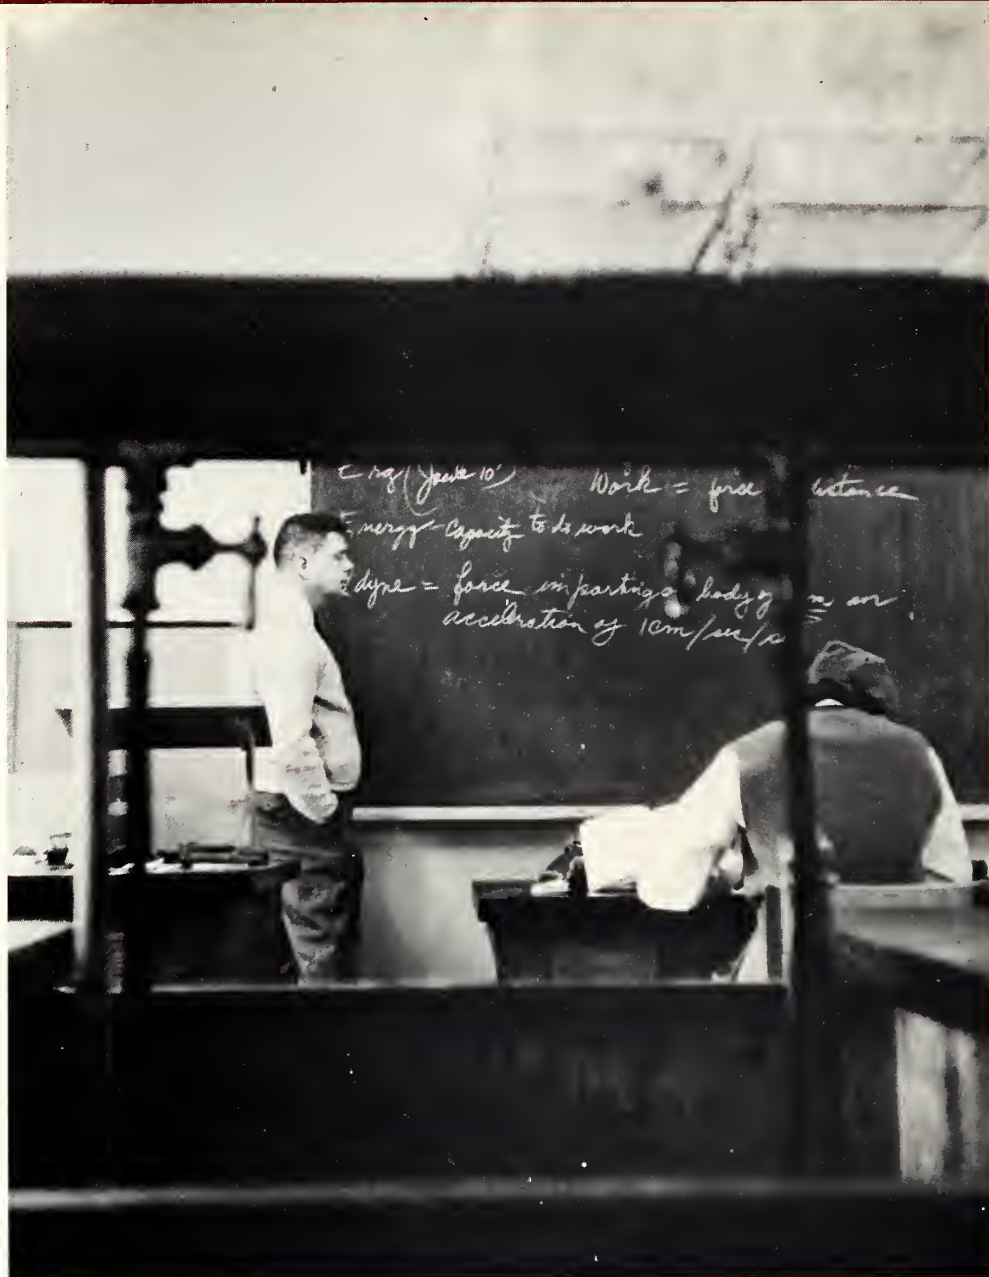 Erg (Joule 10⁷) Work = force istance
Energy - Capacity to do work
dyne = force imparting a body of m an
accelration of 1cm/sec/s